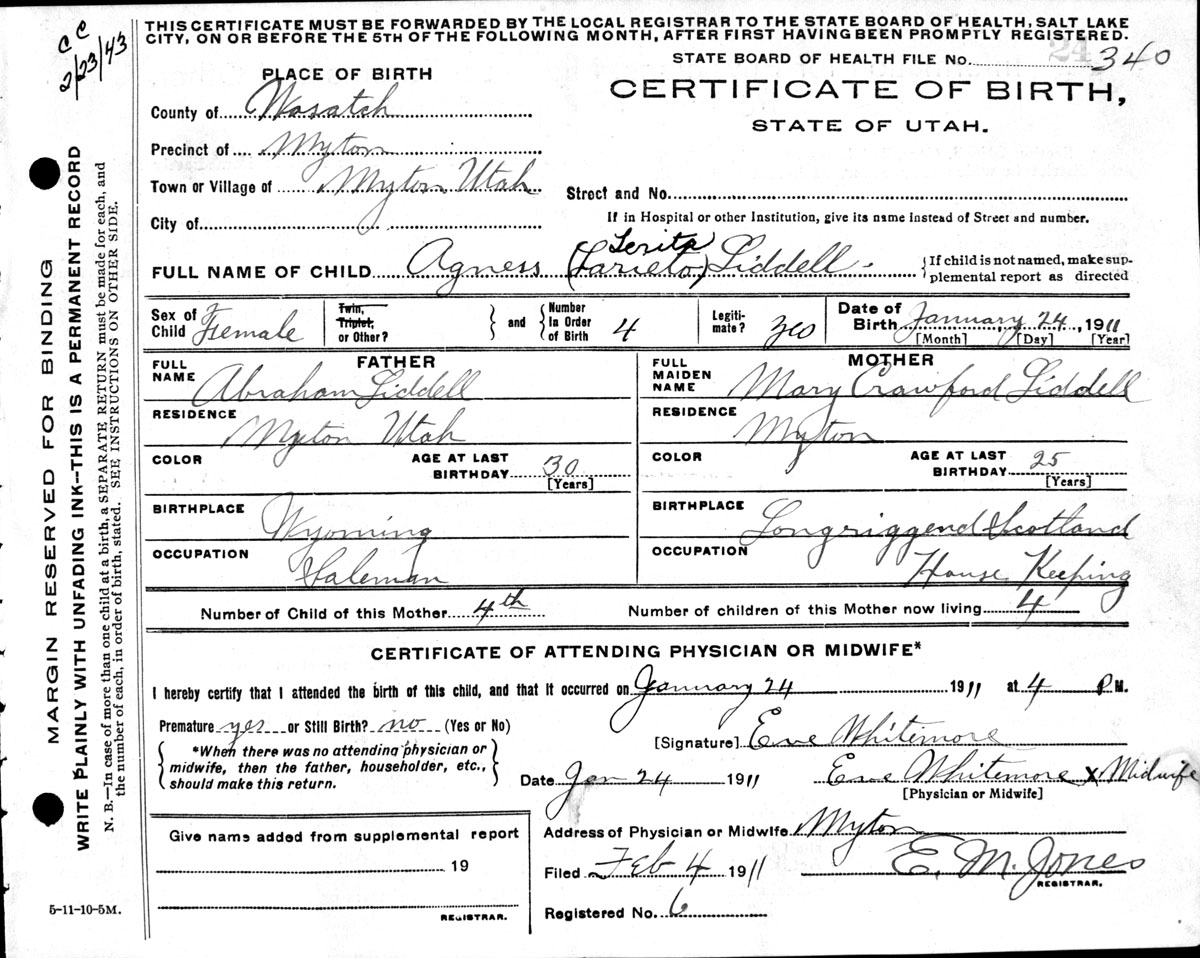 C C
2/23/43
THIS CERTIFICATE MUST BE FORWARDED BY THE LOCAL REGISTRAR TO THE STATE BOARD OF HEALTH, SALT LAKE
CITY, ON OR BEFORE THE 5TH OF THE FOLLOWING MONTH, AFTER FIRST HAVING BEEN PROMPTLY REGISTERED.
24
STATE BOARD OF HEALTH FILE No. 340
PLACE OF BIRTH
CERTIFICATE OF BIRTH,
STATE OF UTAH.
County of Wasatch
Precinct of Myton
Town or Village of Myton Utah
Street and No.
City of
If in Hospital or other Institution, give its name instead of Street and number.
Lerita
FULL NAME OF CHILD Agness (Larieto) Liddell
{If child is not named, make sup-
plemental report as directed
Sex of Child Female
Twin, Triplet, or Other?
and
Number In Order of Birth 4
Legiti-mate? yes
Date of Birth January 24, 1911
[Month] [Day] [Year]
FATHER
FULL NAME Abraham Liddell
RESIDENCE Myton Utah
COLOR
AGE AT LAST BIRTHDAY 30
[Years]
BIRTHPLACE Wyoming
OCCUPATION Saleman
MOTHER
FULL MAIDEN NAME Mary Crawford Liddell
RESIDENCE Myton
COLOR
AGE AT LAST BIRTHDAY 25
[Years]
BIRTHPLACE Longriggend Scotland
OCCUPATION House Keeping
Number of Child of this Mother 4th
Number of children of this Mother now living 4
CERTIFICATE OF ATTENDING PHYSICIAN OR MIDWIFE*
I hereby certify that I attended the birth of this child, and that it occurred on January 24 1911 at 4 P M.
Premature yes or Still Birth? no (Yes or No)
*When there was no attending physician or
midwife, then the father, householder, etc.,
should make this return.
[Signature] Eve Whitemore
Date Jan 24 1911
Eve Whitemore X Midwife
[Physician or Midwife]
Give name added from supplemental report
19
REGISTRAR.
Address of Physician or Midwife Myton
Filed Feb 4 1911
E. M. Jones
REGISTRAR.
Registered No. 6
5-11-10-5M.
MARGIN RESERVED FOR BINDING
WRITE PLAINLY WITH UNFADING INK--THIS IS A PERMANENT RECORD
N. B.—In case of more than one child at a birth, a SEPARATE RETURN must be made for each, and
the number of each, in order of birth, stated. SEE INSTRUCTIONS ON OTHER SIDE.